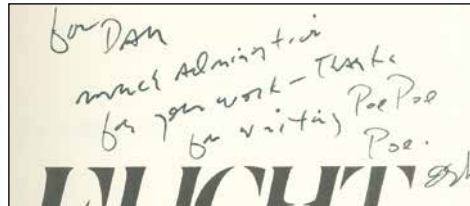 for DAN
much admiration
for your work – Thanks
for writing Poe Poe
Poe.
FLIGHT